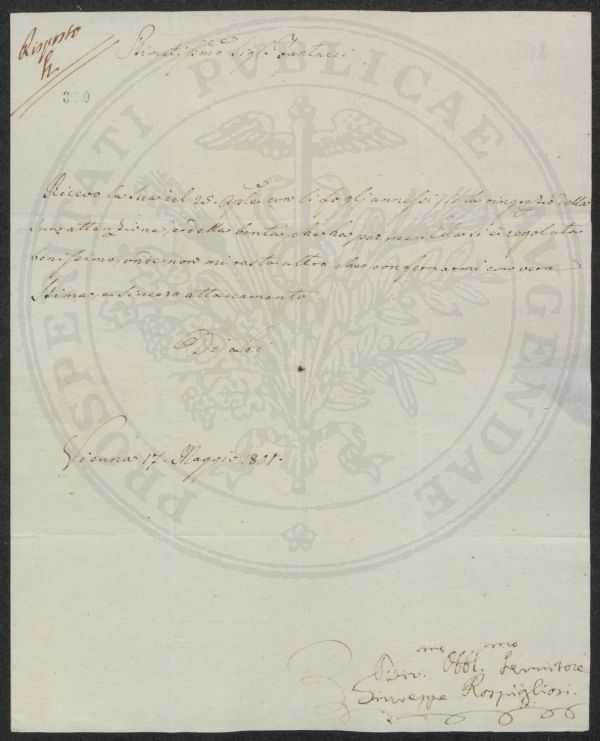 Risposto
Stimatissimo Sigr. Fantucci
300
Ricevo la sua del 25. Aple. con li fogli annessi; e la ringrazio della
sua attenzione, e della bontà, che ha per me. Ella si è regolata
benissimo, onde non mi resta altro che confermarmi con vera
stima, e sincero attaccamento
Di Lei
Vienna 17. Maggio 1801.
Divmo. Obblmo. Servitore
Giuseppe Rospigliosi
PROSPERITATI PVBLICAE AVGENDAE